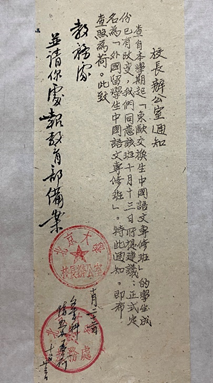 校長辦公室通知
查自本學期起「東歐交換生中國語文專修班」的學生成
份已有改变，我們同意該班十月十三日所提建議：正式定
名為「外國留學生中國語文專修班」。特此通知。即希
查照為荷。此致
教務處
並請你處報教育部備案
北京大學
校長辦公室
十月